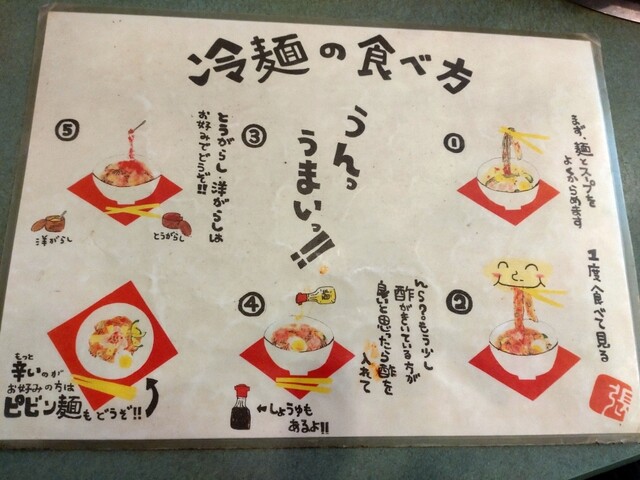 冷麺の食べ方
①
まず、麺とスープを
よくからめます
②
1度、食べて見る
③
うんっ
うまいっ!!
④
んら?。もう少し
酢がきいている方が
良いと思ったら酢を
入れて
←しょうゆも
あるよ!!
⑤
とうがらし・洋がらしは
お好みでどうぞ!!
洋がらし
とうがらし
もっと
辛いのが
お好みの方は
ピビン麺もどうぞ!!
張